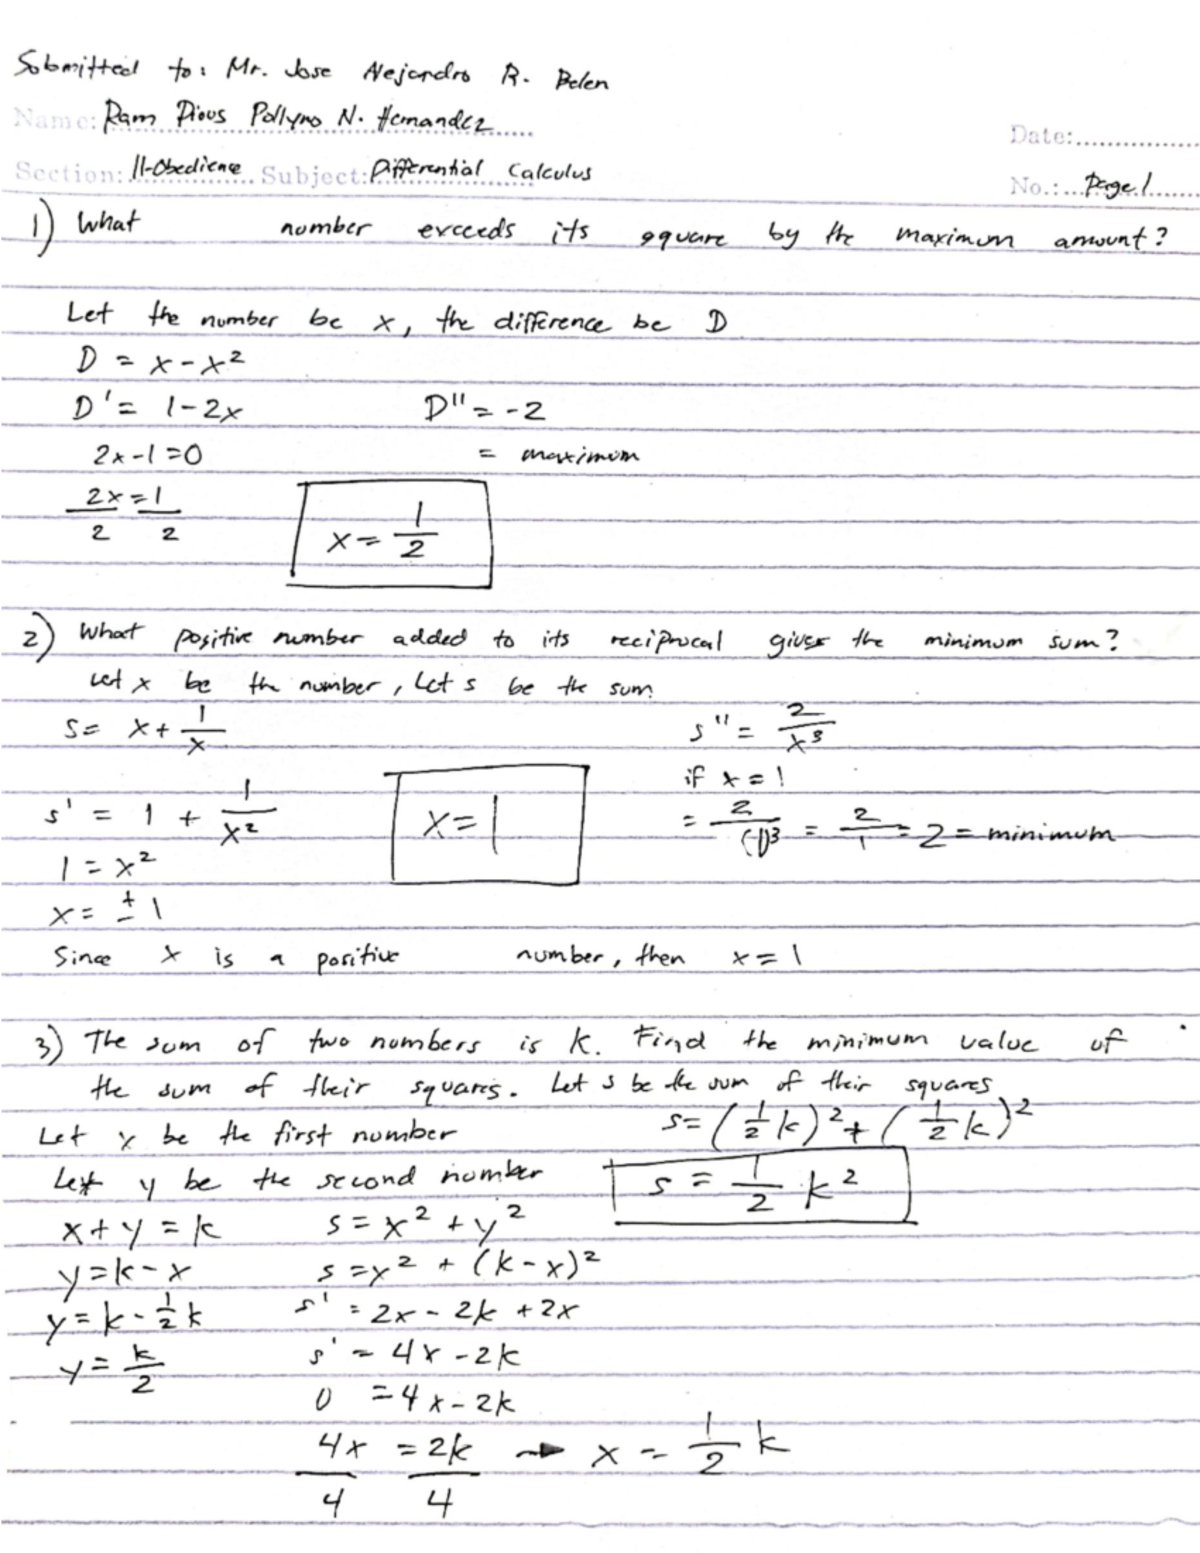 Submitted to: Mr. Jose Alejandro R. Belen
Name: Ram Pious Pollyno N. Hernandez
Date:
Section: 11-Obedience Subject: Differential Calculus
No.: Page 1
1) What number exceeds its square by the maximum amount?
Let the number be x, the difference be D
D = x - x²
D' = 1 - 2x D'' = -2
2x - 1 = 0 = maximum
2x/2 = 1/2
x = 1/2
2) What positive number added to its reciprocal gives the minimum sum?
Let x be the number, Let s be the sum
s = x + 1/x s'' = 2/x³
if x = 1
s' = 1 + 1/x² x = 1 = 2/(-1)³ = 2/1 = 2 = minimum
1 = x²
x = ± 1
Since x is a positive number, then x = 1
3) The sum of two numbers is k. Find the minimum value of
the sum of their squares. Let s be the sum of their squares
Let x be the first number s = (1/2 k)² + (1/2 k)²
Let y be the second number s = 1/2 k²
x + y = k s = x² + y²
y = k - x s = x² + (k - x)²
y = k - 1/2 k s' = 2x - 2k + 2x
y = k/2 s' = 4x - 2k
0 = 4x - 2k
4x/4 = 2k/4 → x = 1/2 k